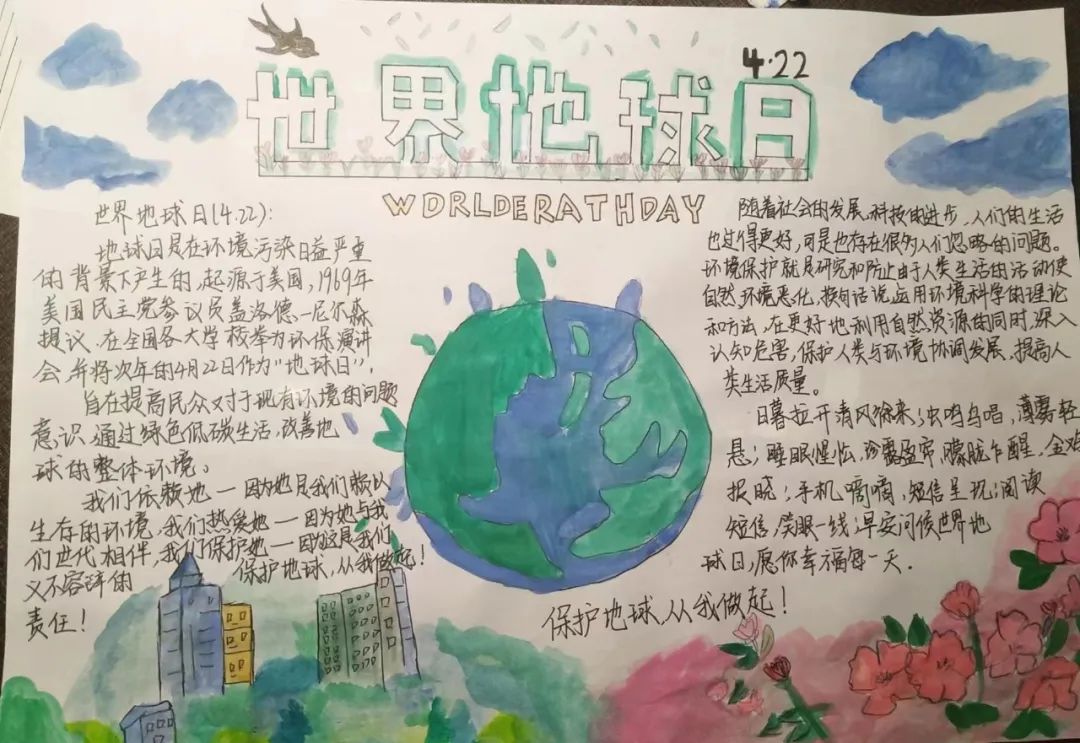 4·22
世界地球日
WORLDERATHDAY
世界地球日(4.22):
地球日是在环境污染日益严重
的背景下产生的,起源于美国,1969年
美国民主党参议员盖洛德·尼尔森
提议,在全国各大学校举为环保演讲
会,并将次年的4月22日作为"地球日",
旨在提高民众对于现有环境的问题
意识,通过绿色低碳生活,改善地
球的整体环境。
我们依赖她—因为她是我们赖以
生存的环境,我们热爱她—因为她与我
们世代相伴,我们保护她—因为这是我们
义不容辞的
责任!
保护地球,从我做起!
随着社会的发展,科技的进步,人们的生活
也过得更好,可是也存在很多人们忽略的问题。
环境保护就是研究和防止由于人类生活的活动使
自然环境恶化,换句话说,运用环境科学的理论
和方法,在更好地利用自然资源的同时,深入
认知危害,保护人类与环境协调发展,提高人
类生活质量。
日暮拉开清风徐来;虫鸣鸟唱,薄雾轻
悬;睡眼惺忪,珍露盈帘,朦胧乍醒,金鸡
报晓;手机嘀嘀,短信呈现;阅读
短信,笑眼一线;早安问侯世界地
球日,愿你幸福每一天.
保护地球,从我做起!